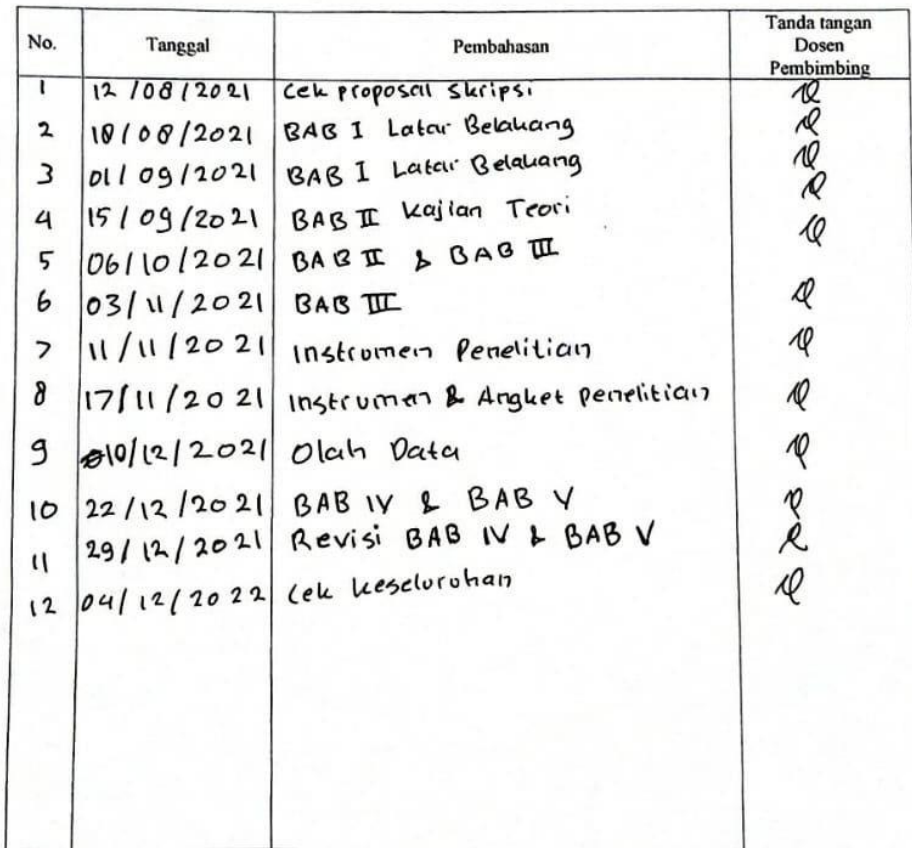 No. Tanggal Pembahasan Tanda tangan
Dosen
Pembimbing
1 12/08/2021 Cek proposal skripsi
2 18/08/2021 BAB I Latar Belakang
3 01/09/2021 BAB I Latar Belakang
4 15/09/2021 BAB II Kajian Teori
5 06/10/2021 BAB II & BAB III
6 03/11/2021 BAB III
7 11/11/2021 Instrumen Penelitian
8 17/11/2021 Instrumen & Angket penelitian
9 10/12/2021 Olah Data
10 22/12/2021 BAB IV & BAB V
11 29/12/2021 Revisi BAB IV & BAB V
12 04/12/2022 Cek keselurohan